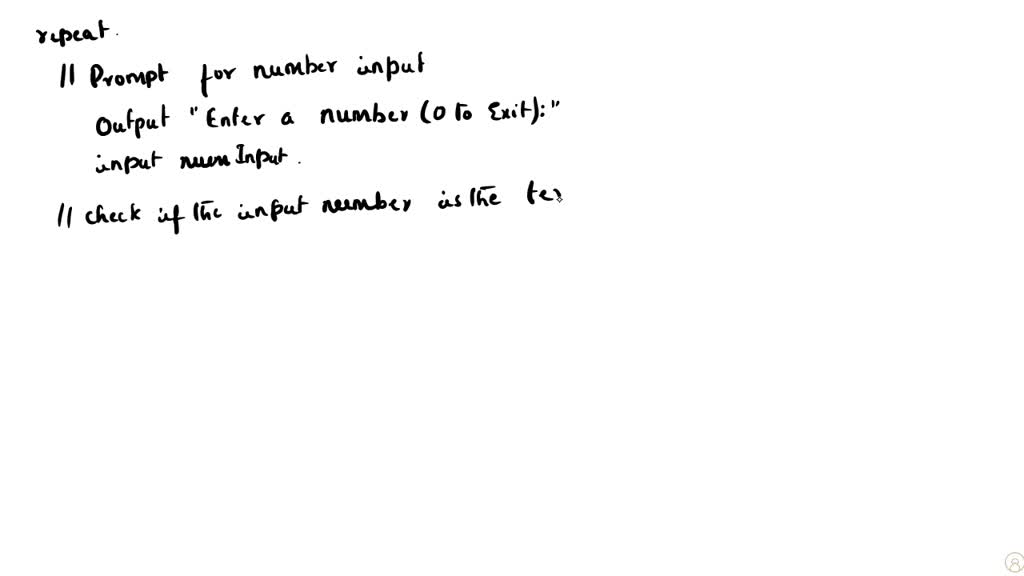 repeat.
// Prompt for number input
Output "Enter a number (0 to Exit):"
input numInput.
// check if the input number is the ter